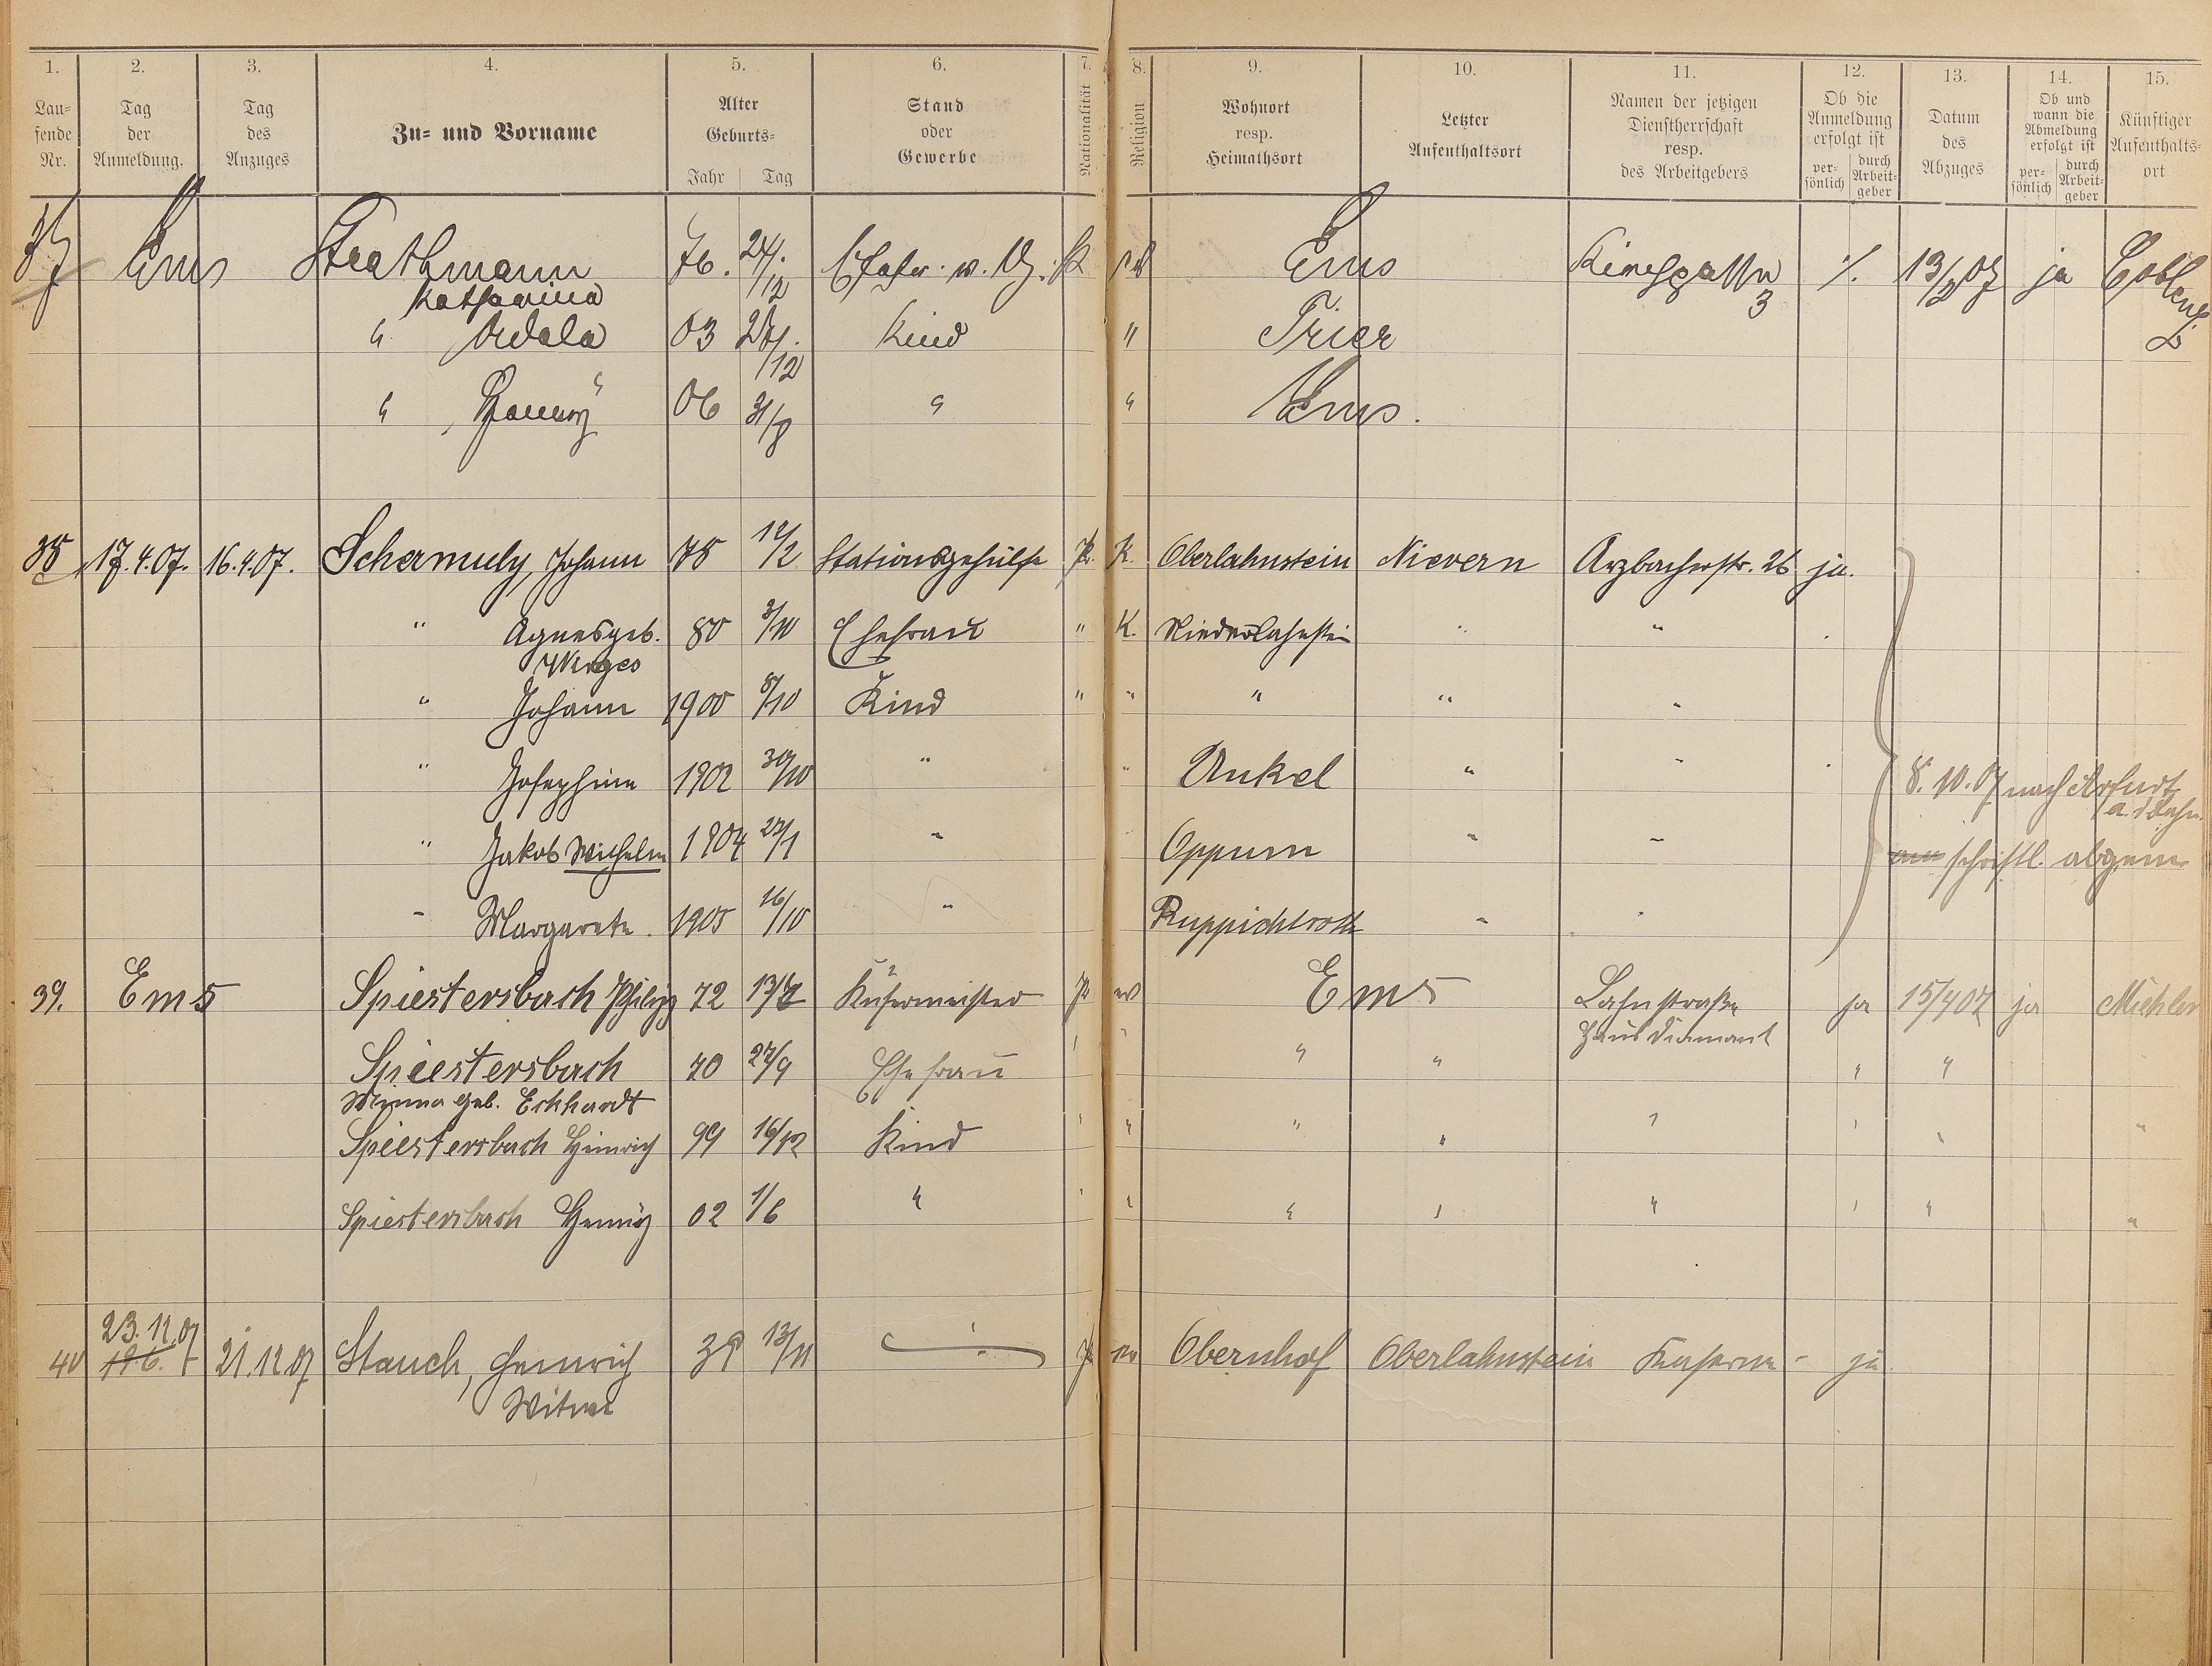 1. 2. 3. 4. 5. 6. 7. 8. 9. 10. 11. 12. 13. 14. 15.
Lau=
fende
Nr.
Tag
der
Anmeldung.
Tag
des
Anzuges
Zu= und Vorname
Alter
Geburts=
Jahr Tag
Stand
oder
Gewerbe
Nationalität
Religion
Wohnort
resp.
Heimathsort
Letzter
Aufenthaltsort
Namen der jetzigen
Dienstherrschaft
resp.
des Arbeitgebers
Ob die
Anmeldung
erfolgt ist
per=
sönlich
durch
Arbeit=
geber
Datum
des
Abzuges
Ob und
wann die
Abmeldung
erfolgt ist
per=
sönlich
durch
Arbeit=
geber
Künftiger
Aufenthalts=
ort
37 Ems Strathmann 76. 24./12 Ems Kirchgasse 3 ·/. 13/2 07 ja Coblenz
Katharina
" Adela 03 24./12 Kind " Trier
" Fanny 06 31/8 " " Ems.
38 17.4.07. 16.4.07. Schermuly, Johann 75 12/2 Stationsgehülfe Pr. K. Oberlahnstein Nievern Arzbacherstr. 26 ja.
" Agnes geb. 80 3/10 Ehefrau " K. Niederlahnstein " "
Wirges
" Johann 1900 8/10 Kind " " " " "
" Josephine 1902 30/10 " " Unkel " "
8.10.07 nach Arfurt
a. d. Lahn
" Jakob Wilhelm 1904 27/1 " Oppum " "
schriftl. abgem
" Margarete. 1905 16/10 " Ruppichteroth " "
39. Ems Spiestersbach Philipp 72 13/7 Küfermeister Pr ev Ems Lahnstraße ja 15/4 07 ja Miehlen
Haus Diamant
Spiestersbach 70 27/9 Ehefrau " " " " " "
Minna geb. Eckhardt
Spiestersbach Heinrich 99 16/12 Kind " " " " " " " "
Spiestersbach Henny 02 1/6 " " " " " " " " "
23.12.07
40 19.6. 21.12.07 Stauch, Heinrich 39 13/11 Pr ev Obernhof Oberlahnstein Kaserne - ja.
Witwe